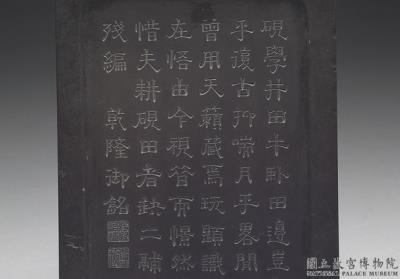 硯學井田牛卧田邊豈
乎復古抑喘月乎畧聞
曾用天籟藏焉玩題識
在悟由今視昔而憬然
惜夫耕硯田者缺二輔
殘編 乾隆御銘
國立故宮博物院
NATIONAL PALACE MUSEUM